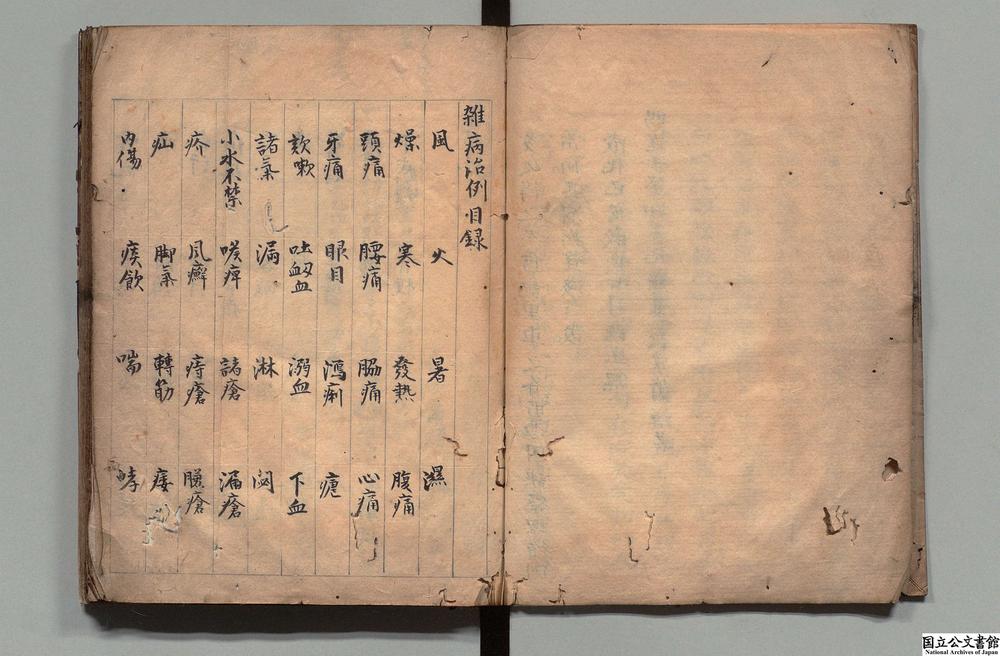 雑病治例目録
風 火 暑 濕
燥 寒 發熱 腹痛
頭痛 腰痛 脇痛 心痛
牙痛 眼目 瀉痢 瘧
欬嗽 吐衂血 溺血 下血
諸氣 漏 淋 閟
小水不禁 喉痺 諸瘡 漏瘡
疥 風癬 痔瘡 臁瘡
疝 脚氣 轉筋 痿
内傷 痰飲 喘 哮
国立公文書館
National Archives of Japan